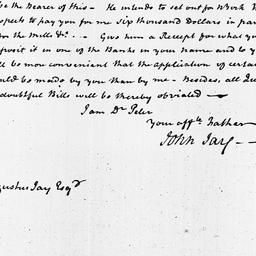 be the Bearer of this – He intends to set out for N York
spects to pay you for me Six thousand Dollars in par
or the Mills &c. – Give him a Receipt for what you
posit it in one of the Banks in your name and to y
ll be more convenient that the application of certain
ould be made by you than by me – Besides, all Que
doubtful Bills will be thereby obviated –
I am Dr. Peter
Your affte. Father
John Jay –
gustus Jay Esqr